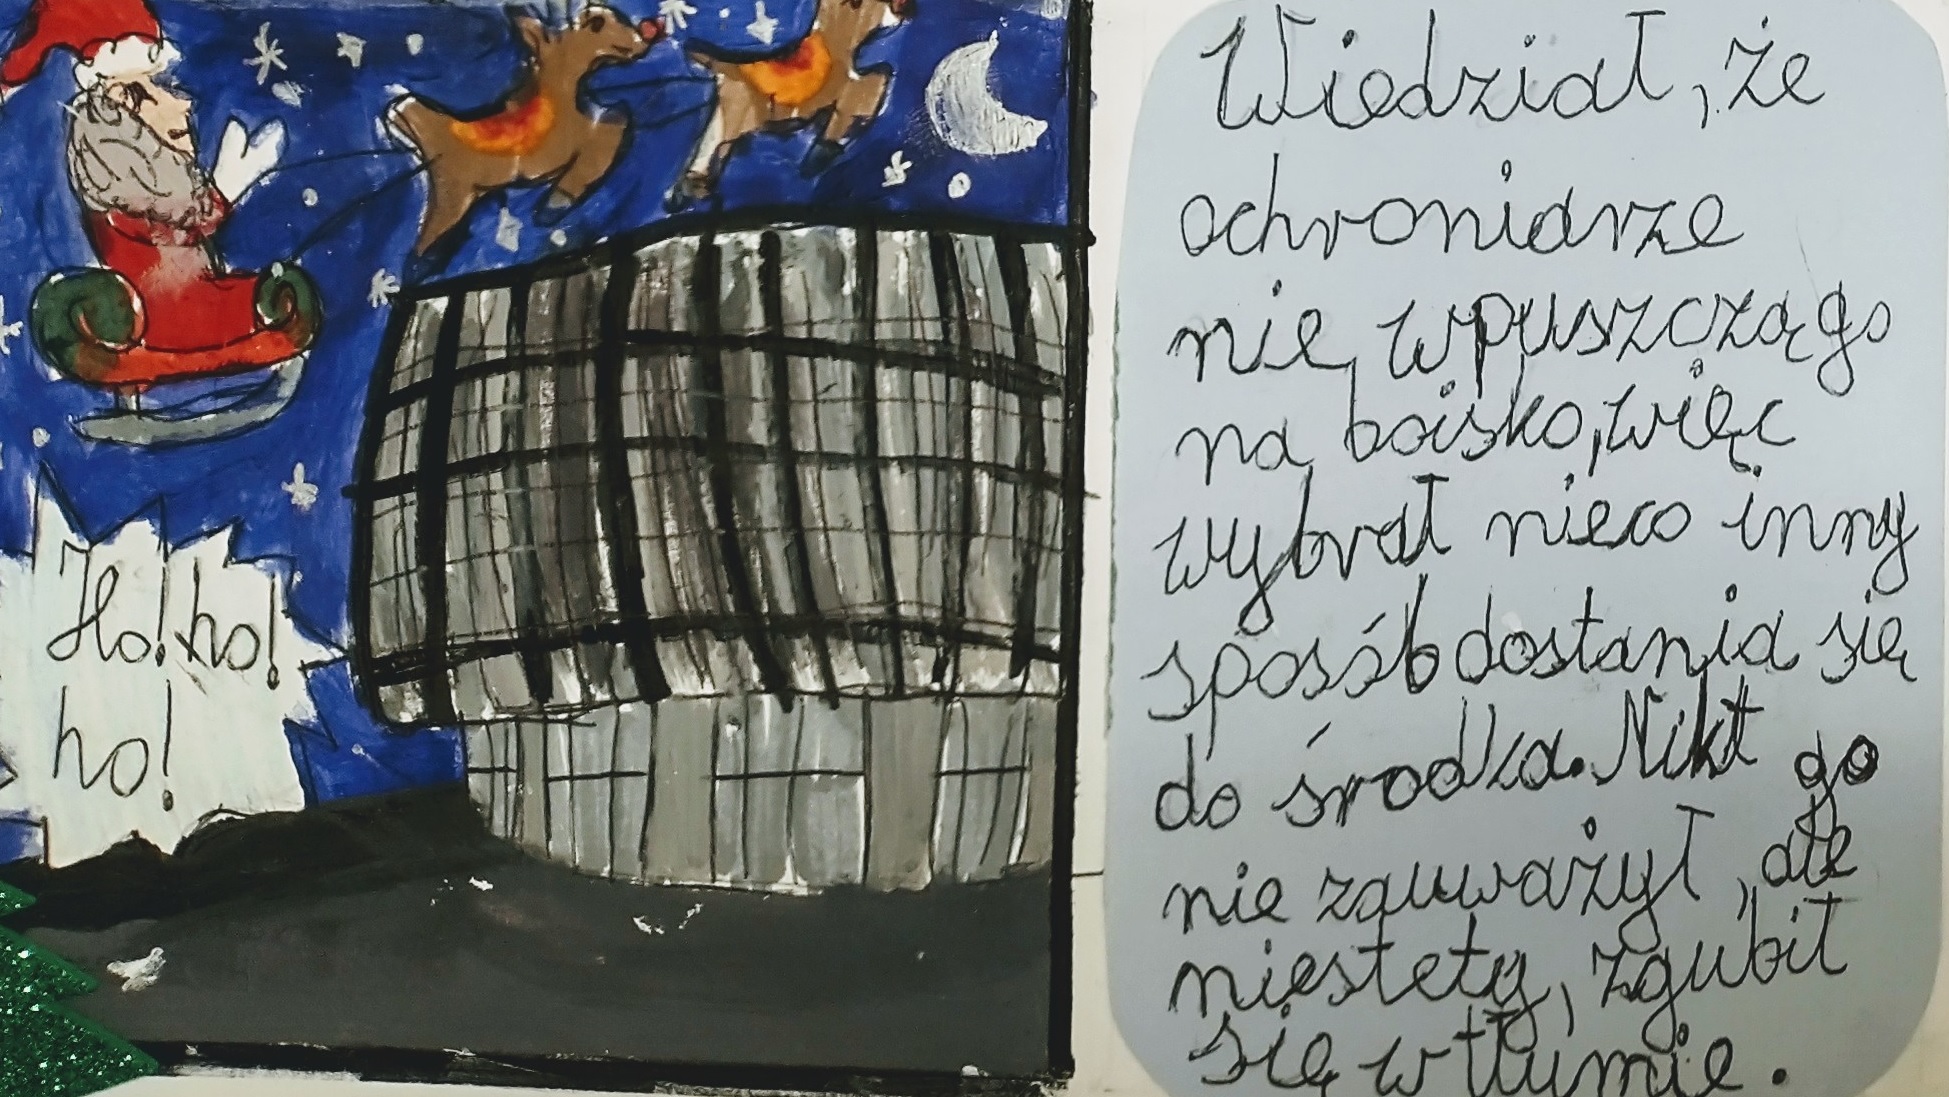 Ho! ho!
ho!
Wiedział, że
ochroniarze
nie wpuszczą go
na boisko, więc
wybrał nieco inny
sposób dostania się
do środka. Nikt go
nie zauważył, ale
niestety, zgubił
się w tłumie.